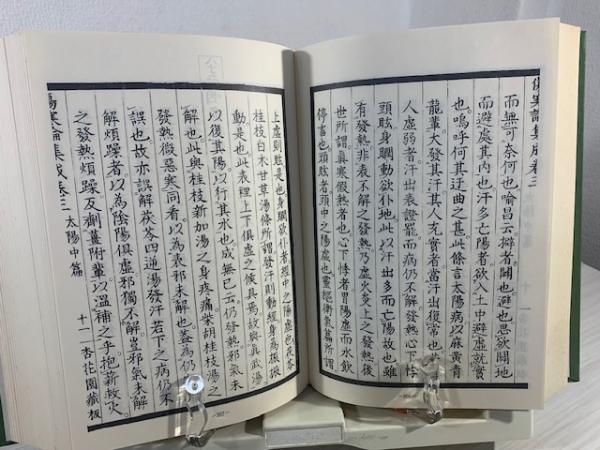 傷寒論集成卷三
而無可奈何也喻昌云擗者闢也避也思欲闢地
而避處其內也汗多亡陽者欲入土中避虛就實
也嗚呼何其迂曲之甚此條言太陽病以麻黃青
龍輩大發其汗其人充實者當汗出復常也
人虛弱者汗出表證罷而病仍不解發熱心下悸
頭眩身瞤動欲仆地此以汗出多而亡陽故也雖
有發熱非表不解之發熱乃虛火炎上之發熱後
世所謂真寒假熱者也心下悸者胃陽虛而水飲
停蓄也頭眩者頭中之陽虛也靈樞衛氣篇所謂
上虛則眩是也身瞤欲仆者經中之陽虛也茯苓
桂枝白木甘草湯條所謂發汗則動經身為振振
動是也此表裡上下俱虛之候具焉故與真武湯
以復其陽以行其水也成無已云仍發熱邪氣未
解也此與桂枝新加湯之身疼痛柴胡桂枝湯之
發熱微惡寒同看以為表邪未解也蓋為仍不
誤也故亦誤解茯苓四逆湯發汗若下之病仍不
解煩躁者以為陰陽俱虛邪獨不解豈邪氣未解
之發熱煩躁反劑薑附輩以溫補之乎抱薪救火
傷寒論集成卷三 太陽中篇 十一 杏花園藏板